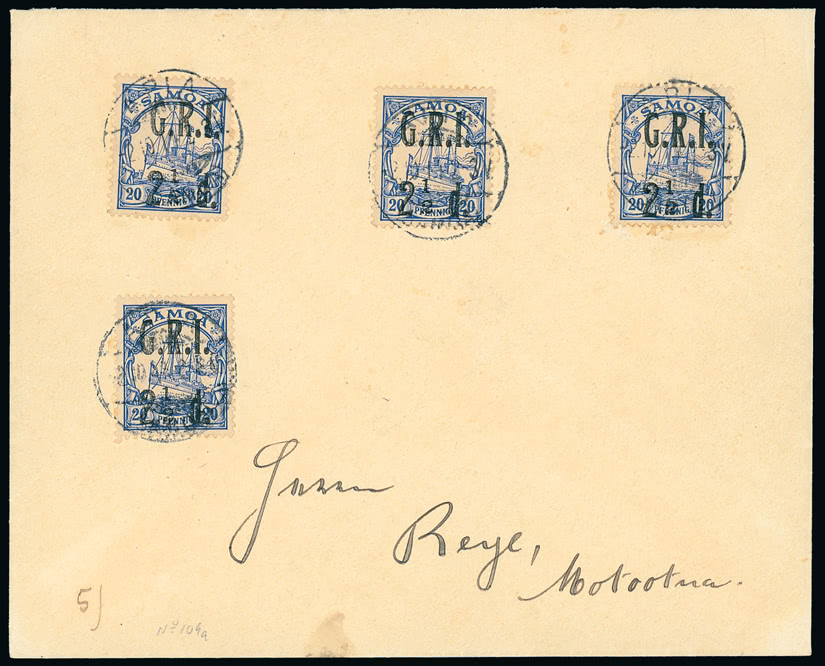 SAMOA
G.R.I.
2 1/2 d.
20 PFENNIG 20
SAMOA
G.R.I.
2 1/2 d.
20 PFENNIG 20
SAMOA
G.R.I.
2 1/2 d.
20 PFENNIG 20
APIA
SAMOA
G.R.I.
2 1/2 d.
20 PFENNIG 20
Herrn
Reye,
Motootua.
5)
No 104a